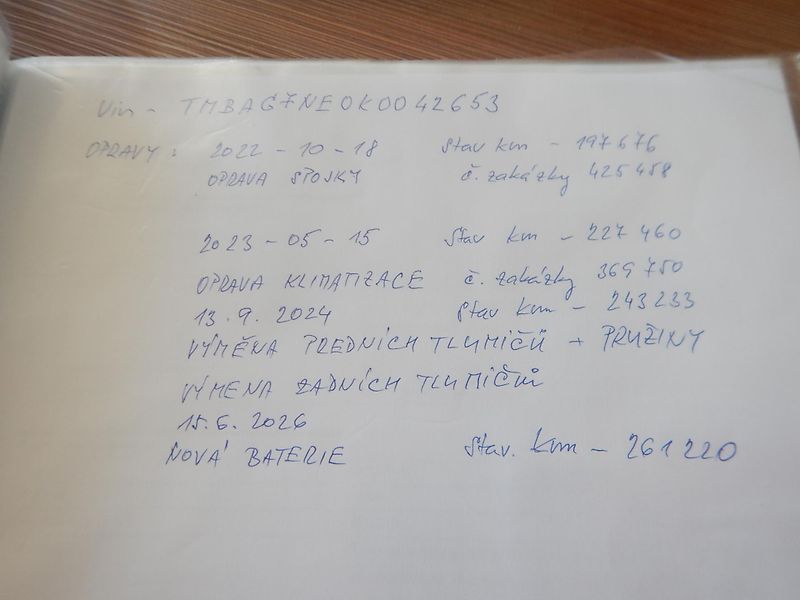 Vin - TMBAG7NE0K0042653
OPRAVY: 2022 - 10 - 18 stav km - 197676
OPRAVA SPOJKY č. zakázky 425458
2023 - 05 - 15 stav km - 227 460
OPRAVA KLIMATIZACE č. zakázky 369 750
13. 9. 2024 stav km - 243233
VÝMĚNA PREDNÍCH TLUMIČŮ + PRUŽINY
VÝMENA ZADNÍCH TLUMIČŮ
15.6. 2026
NOVÁ BATERIE stav. km - 261 220